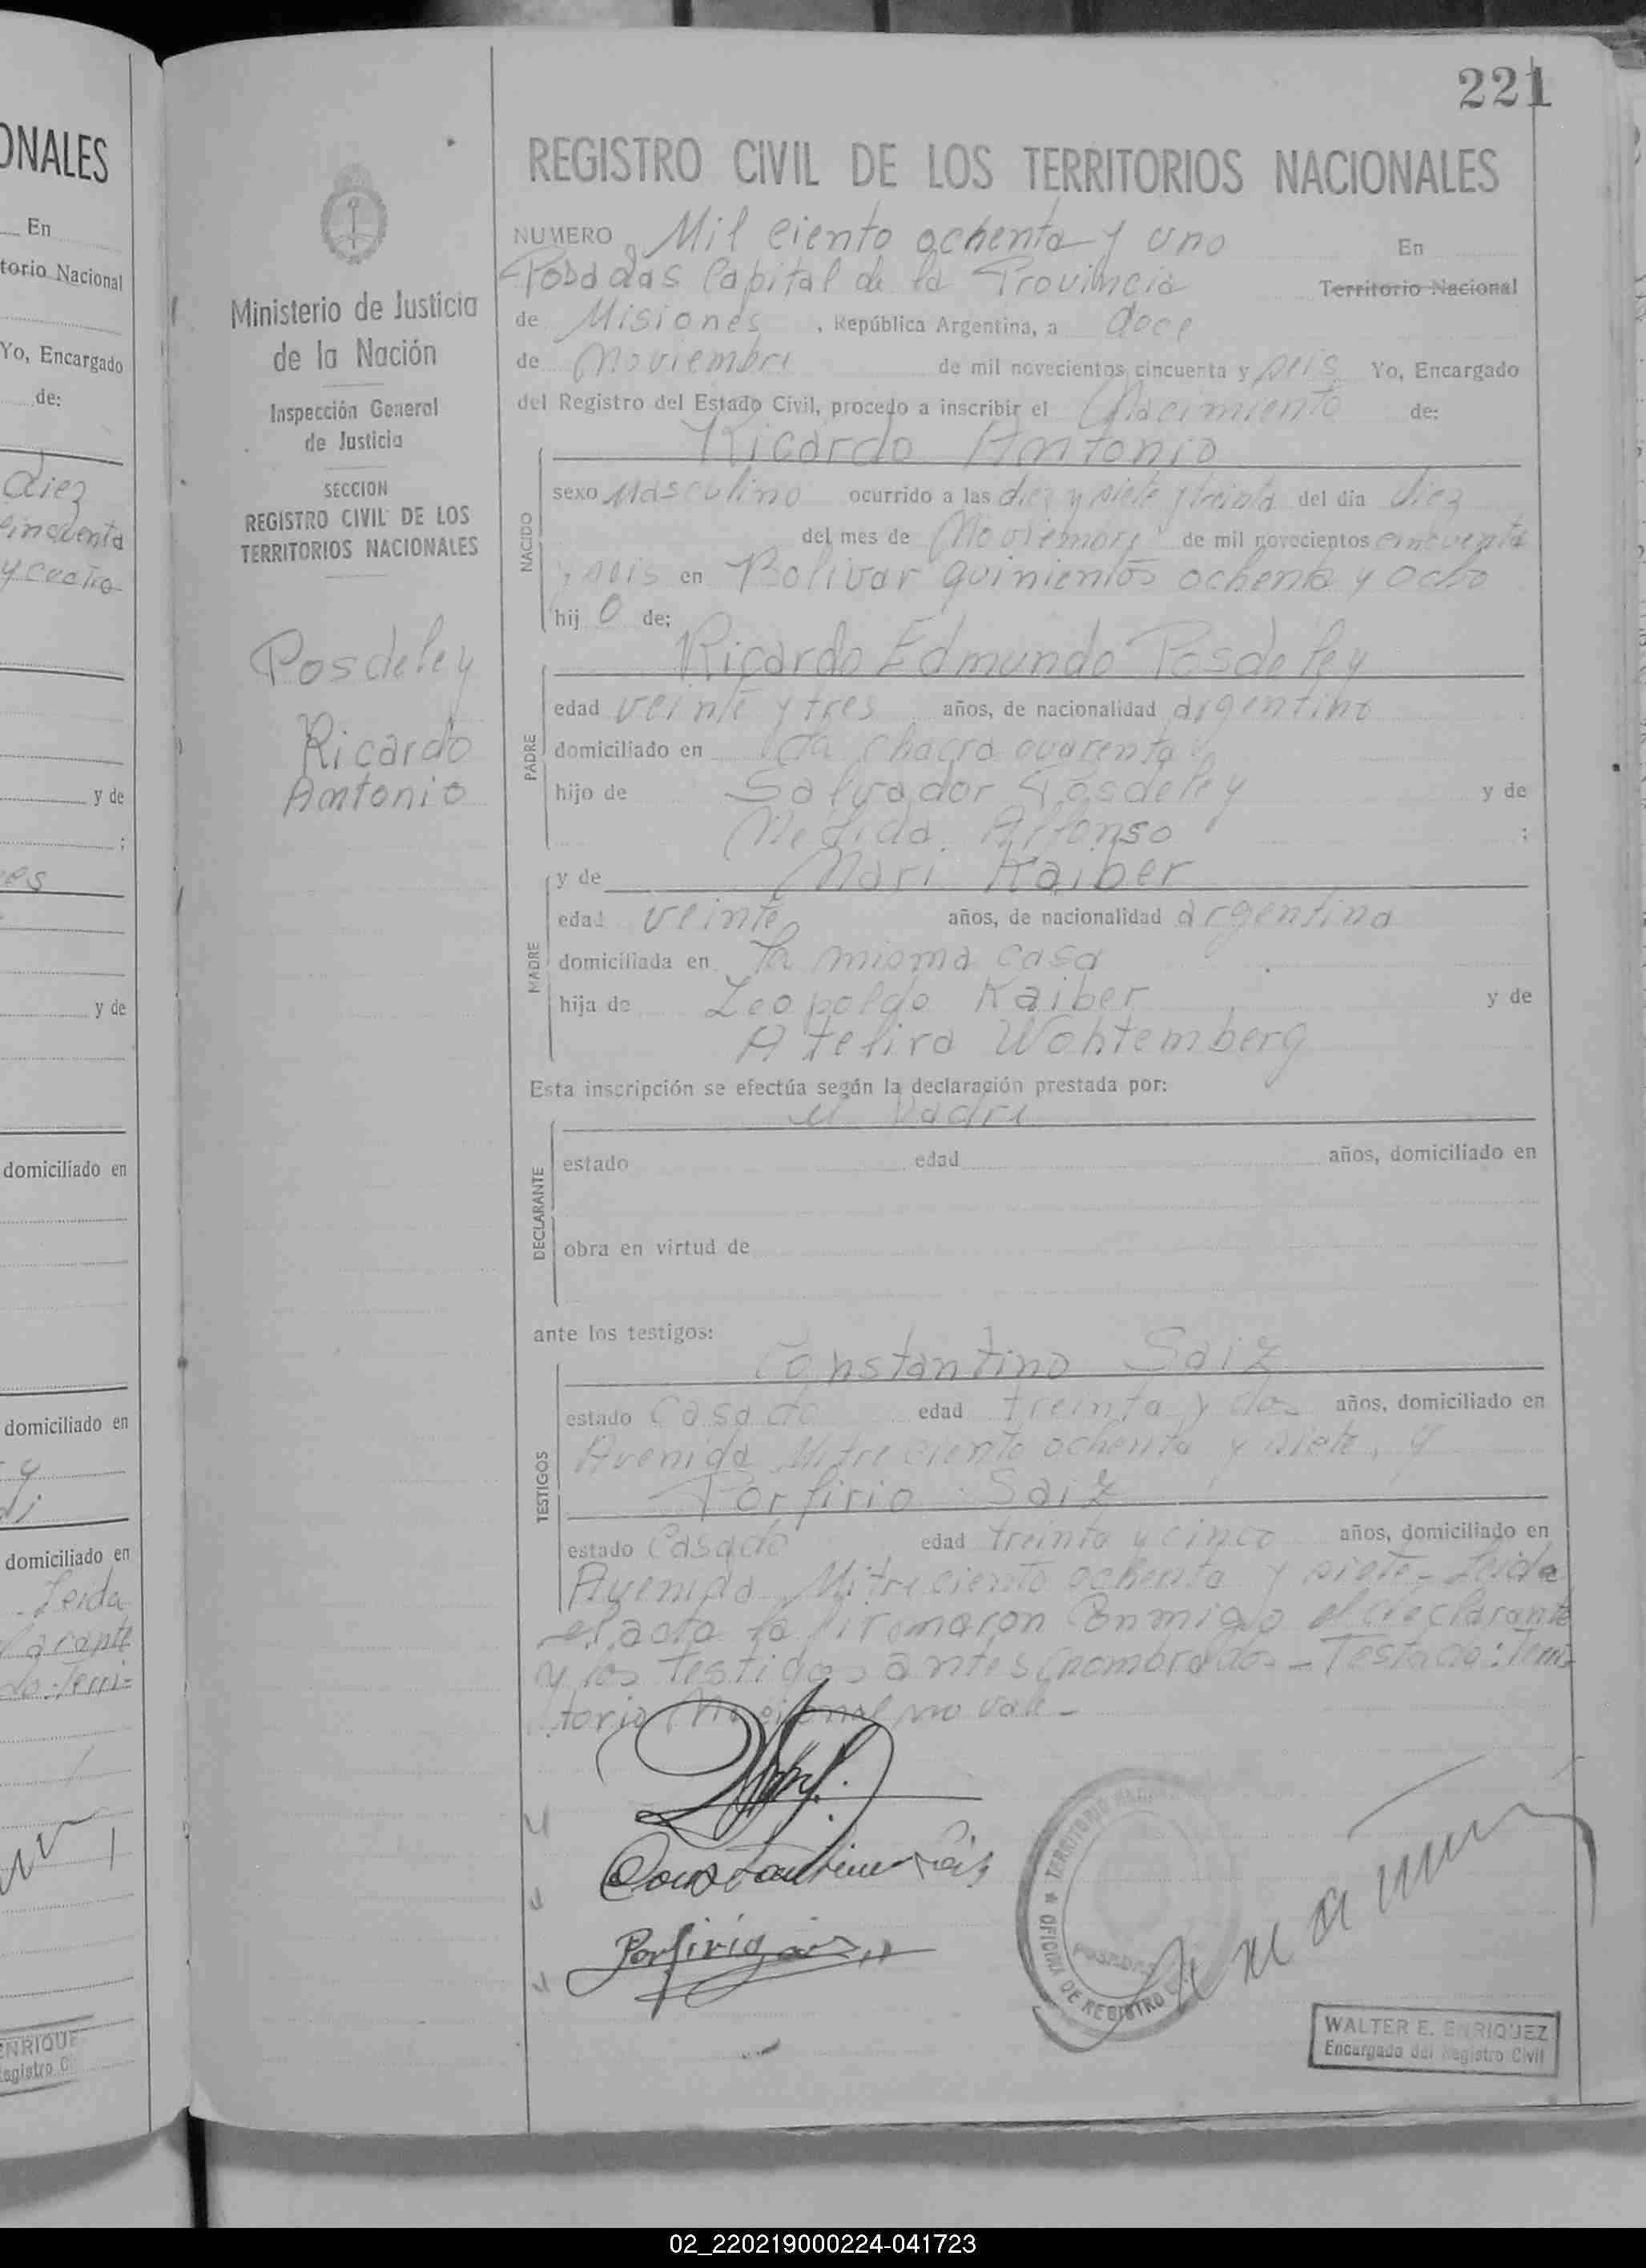 ONALES
En
torio Nacional
Yo, Encargado
de:
diez
cincuenta
y cuatro
y de
;
es
y de
domiciliado en
domiciliado en
y
domiciliado en
Leida
larante
do: Terri=
ENRIQUE
Registro C
Ministerio de Justicia
de la Nación
Inspección General
de Justicia
SECCION
REGISTRO CIVIL DE LOS
TERRITORIOS NACIONALES
Posdeley
Ricardo
Antonio
221
REGISTRO CIVIL DE LOS TERRITORIOS NACIONALES
NUMERO Mil ciento ochenta y uno En
Posadas Capital de la Provincia Territorio Nacional
de Misiones, República Argentina, a doce
de Noviembre de mil novecientos cincuenta y seis Yo, Encargado
del Registro del Estado Civil, procedo a inscribir el Nacimiento de:
Ricardo Antonio
NACIDO
sexo Masculino ocurrido a las diez y siete y treinta del día diez
del mes de Noviembre de mil novecientos cincuenta
y seis en Bolivar quinientos ochenta y ocho
hij o de:
Ricardo Edmundo Posdeley
PADRE
edad veinte y tres años, de nacionalidad argentino
domiciliado en chacra cuarenta
hijo de Salvador Posdeley y de
Alfonso ;
y de Mari Kaiber
MADRE
edad veinte años, de nacionalidad argentina
domiciliada en la misma casa
hija de Leopoldo Kaiber y de
Atelira Wohtemberg
Esta inscripción se efectúa según la declaración prestada por:
el Padre
DECLARANTE
estado edad años, domiciliado en
obra en virtud de
ante los testigos:
Constantino Saiz
TESTIGOS
estado Casado edad treinta y dos años, domiciliado en
Avenida Mitre ciento ochenta y siete, y
Porfirio Saiz
estado Casado edad treinta y cinco años, domiciliado en
Avenida Mitre ciento ochenta y siete - Leida
el acta la firmaron conmigo el declarante
y los testigos antes nombrados - Testado: Terri=
torio Nacional no vale -
Constantino Sais
Porfirio Sais
TERRITORIO
★ OFICINA DE REGISTRO
POSADAS
WALTER E. ENRIQUEZ
Encargado del Registro Civil
02_220219000224-041723